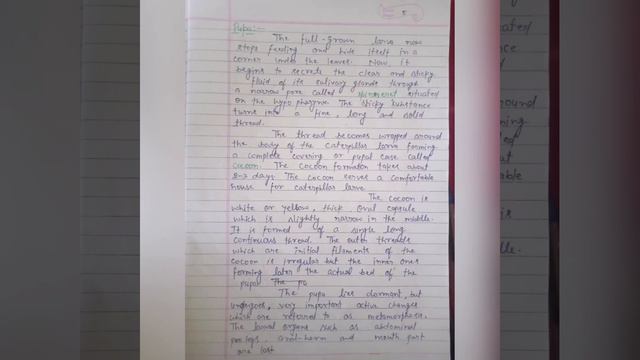 5
Pupa:-
The full-grown larva now
stops feeding and hide itself in a
corner under the leaves. Now it
begins to secrete the clear and sticky
fluid of its salivary glands through
a narrow pore called spinneret situated
on the hypopharynx. The sticky substance
turns into a fine, long and solid
thread.
The thread becomes wrapped around
the body of the caterpillar larva forming
a complete covering or pupal case called
cocoon. The cocoon formation takes about
days. The cocoon serves a comfortable
house for caterpillar larva.
The cocoon is
white or yellow, thick, oval capsule
which is slightly narrow in the middle.
It is formed of a single long
continuous thread. The outer threads
which are initial filaments of the
cocoon is irregular but the inner ones
forming later the actual bed of the
pupa. The pu
The pupa lies dormant, but
undergoes, very important active changes
which are referred to as metamorphosis.
The larval organs such as abdominal
prolegs, anal-horn and mouth part
are lost